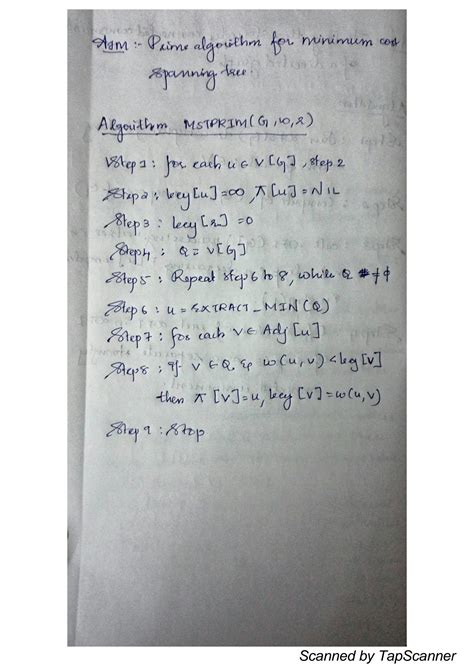 Aim :- Prims algorithm for minimum cost
spanning tree.
Algorithm MSTPRIM(G,w,r)
Step1 : for each u ∈ V[G], step 2
Step2 : key[u]=∞, π[u]=NIL
Step3 : key[r]=0
Step4 : Q = V[G]
Step5 : Repeat step 6 to 8, while Q ≠ ϕ
Step6 : u = EXTRACT_MIN(Q)
Step7 : for each V ∈ Adj[u]
Step8 : if V ∈ Q & w(u,v) < key[v]
then π[V]=u, key[V]=w(u,v)
Step 9 : Stop
Scanned by TapScanner